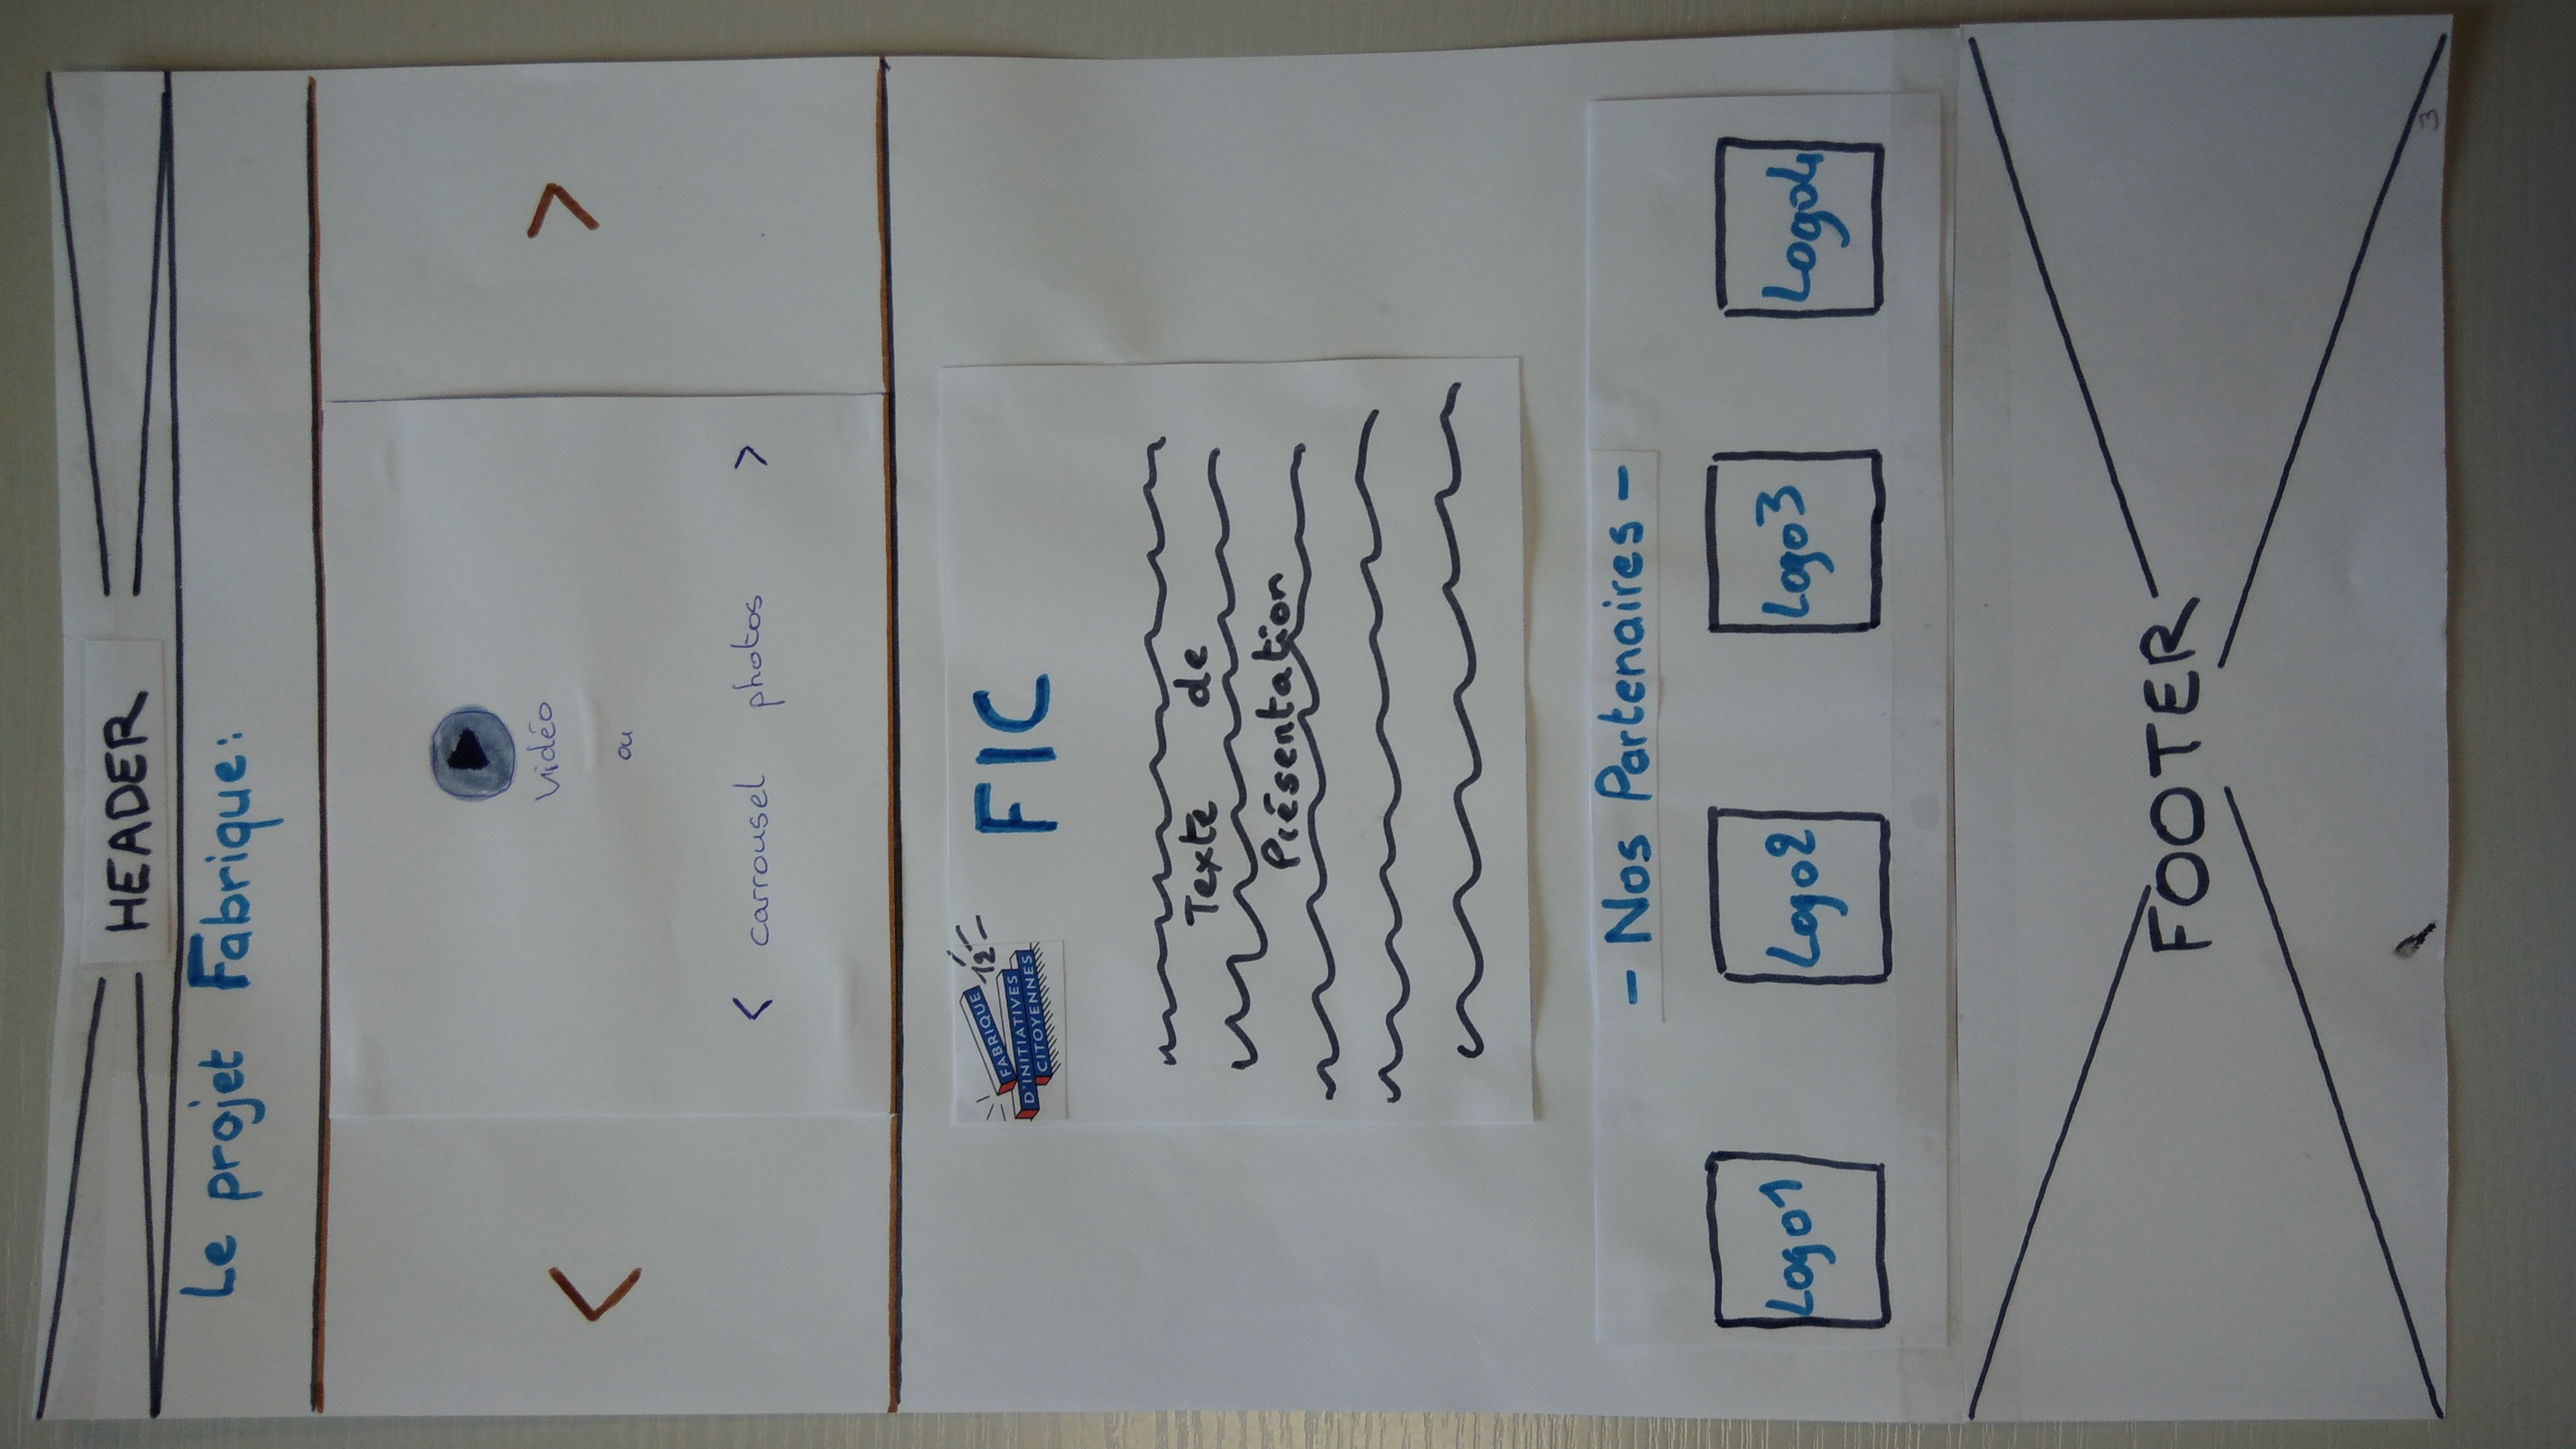 HEADER
Le projet Fabrique:
Vidéo
ou
< carrousel photos >
< >
FABRIQUE
D'INITIATIVES
CITOYENNES
12
FIC
Texte de
Présentation
- Nos Partenaires -
Logo1 Logo2 Logo3 Logo4
FOOTER
3